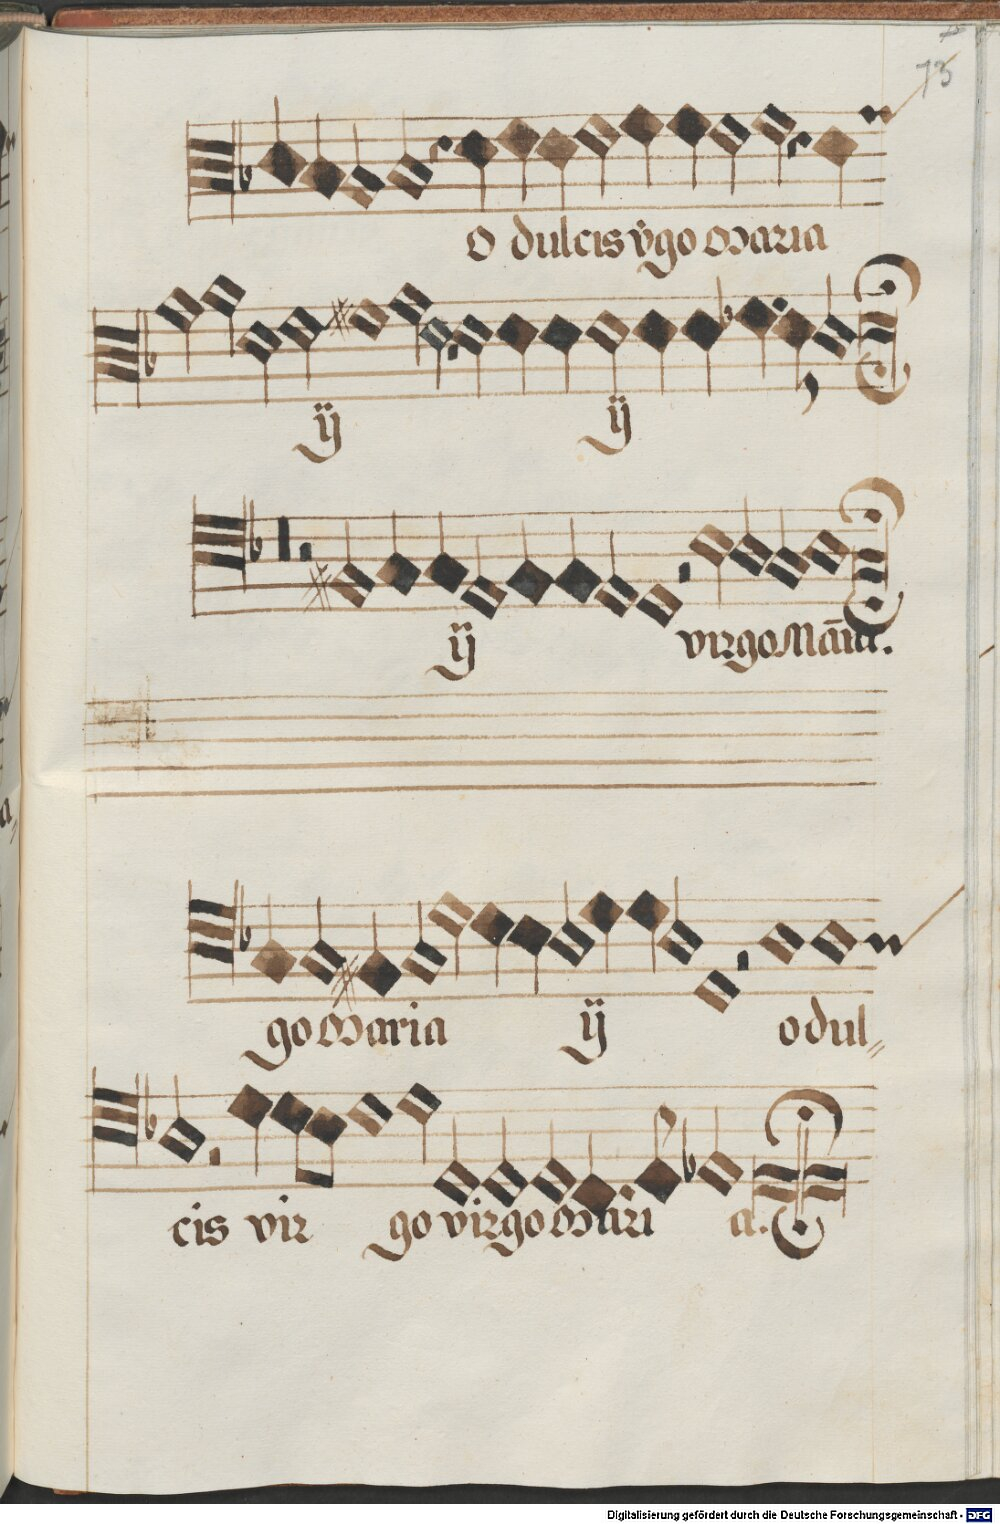 73
O dulcis v̾go Maria
ij ij
ij virgo Mār̄ia.
go Maria ij o dul〃
cis vir go virgo Mari a.
Digitalisierung gefördert durch die Deutsche Forschungsgemeinschaft - DFG